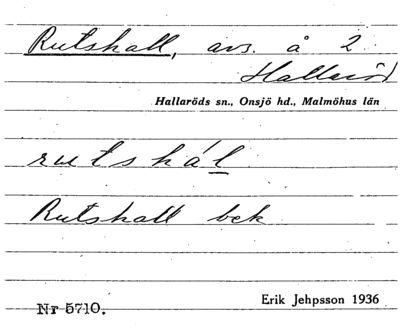 Rutshall, avs. å 2
Hallaröd
Hallaröds sn., Onsjö hd., Malmöhus län
rutshál
Rutshall bek
Erik Jehpsson 1936
Nr 5710.